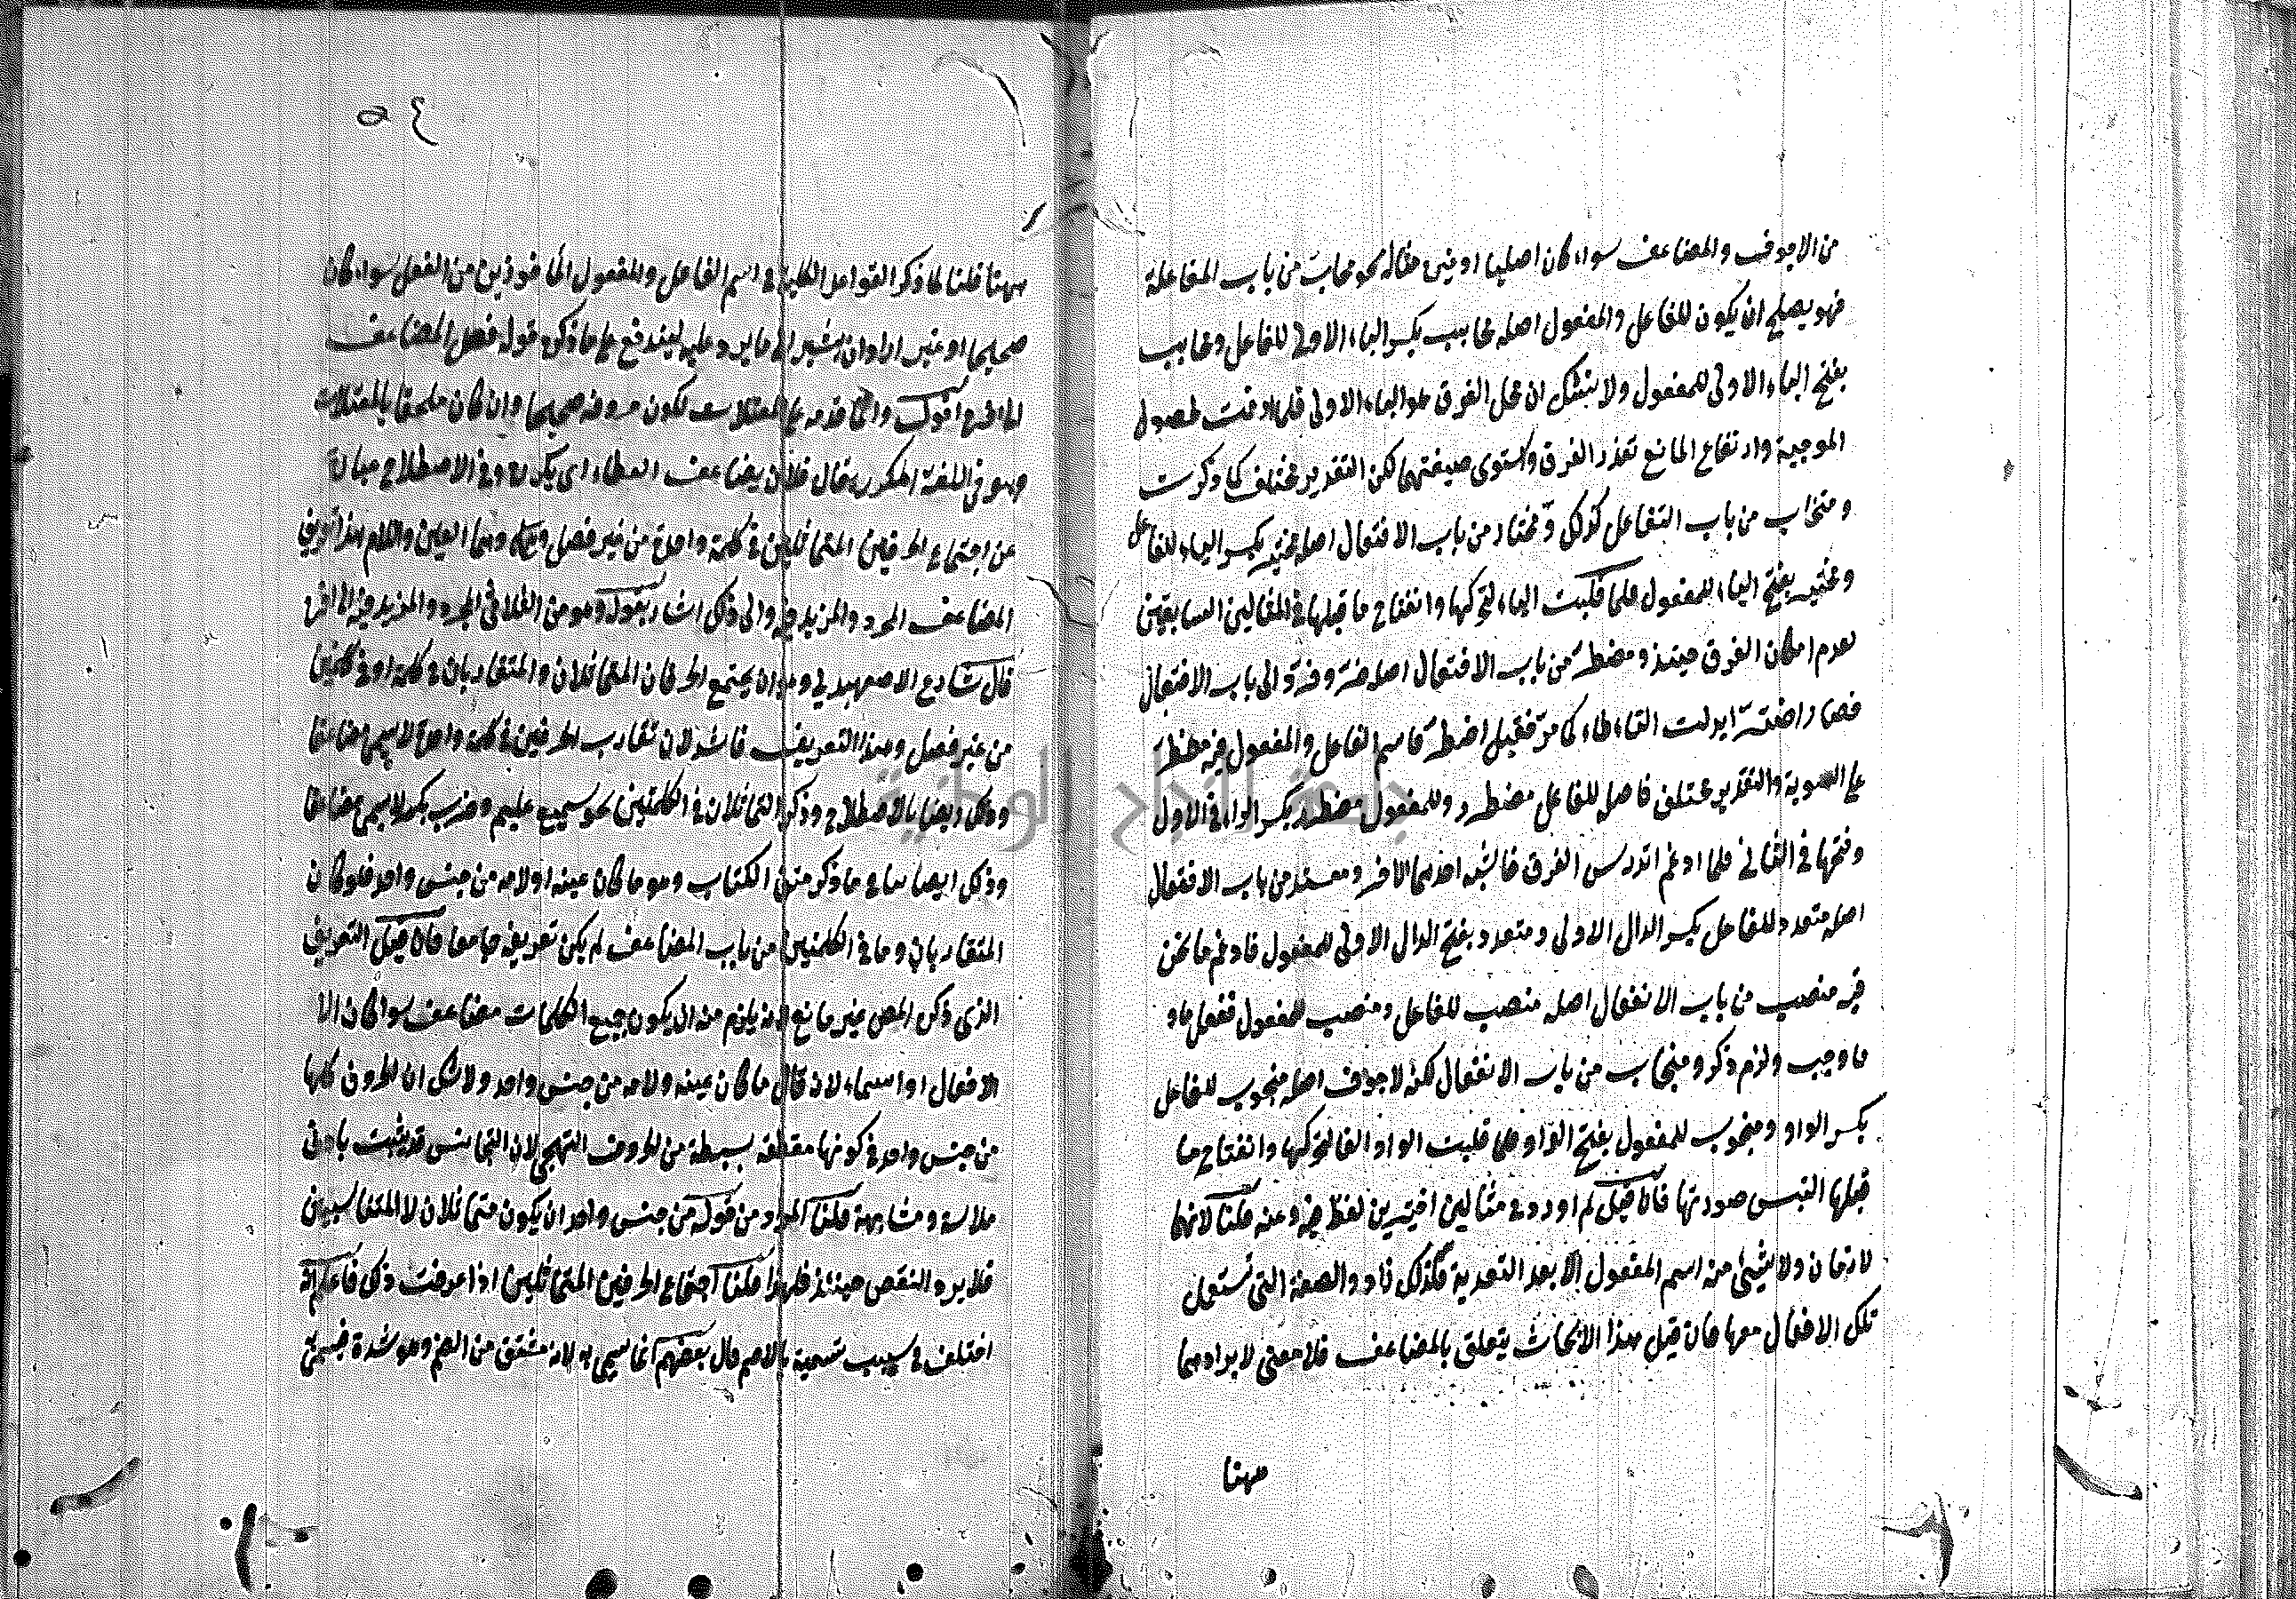 من الاجوف والمضاعف سواء كان اصليا او غيره مثاله نحو محاب من باب المفاعلة
فهو يصلح ان يكون للفاعل والمفعول اصله محابب بكسر الباء الاولى للفاعل ومحابب
بفتح الباء الاولى للمفعول ولا يشك ان محل الفرق هو الباء الاولى فلما ادغمت لحصول
الموجبة وارتفاع المانع تعذر الفرق واستوى صيغتهما لكن التقدير مختلف كما ذكرت
ومتحاب من باب التفاعل كذلك ومختار من باب الافتعال اصله مختير بكسر الياء للفاعل
ومختير بفتح الياء للمفعول فلما قلبت الياء لتحركها وانفتاح ما قبلها في المثالين السابقين
لعدم امكان الفرق حينئذ ومضطر من باب الافتعال اصله ضر وفرد الى باب الافتعال
فصار اضتر ابدلت التاء طاء كما مر فقيل اضطر فاسم الفاعل والمفعول فيه مضطر
على السوية والتقدير مختلف فاصله للفاعل مضطرر وللمفعول مضطرر بكسر الراء في الاول
وفتحها في الثاني فلما ادغم اندرس الفرق فاشبه احدهما الآخر ومعتد من باب الافتعال
اصله معتدد للفاعل بكسر الدال الاولى ومعتدد بفتح الدال الاولى للمفعول فادغم ما نحن
فيه منصب من باب الانفعال اصله منصبب للفاعل ومنصبب للمفعول ففعل ما
ما وجب ولزم ذكره ومنجاب من باب الانفعال لكنه لاجوف اصله منجوب للفاعل
بكسر الواو ومنجوب للمفعول بفتح الواو فلما قلبت الواو الفا لتحركها وانفتاح ما
قبلها التبس صورتها فان قيل لم اورد في مثالين اخيرين لفظ فيه وعنه قلنا لانهما
لازمان ولا يشئ منه اسم المفعول الا بعد التعدية فلذلك زاد والصفة التي تستعمل
تلك الافعال معها فان قيل هذا الابحاث يتعلق بالمضاعف فلا معنى لايرادها
ههنا
٥٤
ههنا قلنا لما ذكر القواعد الكلية في اسم الفاعل والمفعول الماخوذين من الفعل سواء كان
صحيحا او غيره اراد ان يشير الى ما يرد عليه ليندفع على ما ذكره قوله فصل المضاعف
لما فرغ اقول وانما قدمه على المعتلات لكون حروفه صحيحا وان كان ملحقا بالمعتلات
وهو في اللغة المكرر يقال فلان يضاعف العطاء اى يكرره وفي الاصطلاح عبارة
عن اجتماع الحرفين المتماثلين في كلمة واحدة من غير فصل وهما العين واللام هذا تعريف
المضاعف المجرد والمزيد فيه والى ذلك اشار بقوله وهو من الثلاثي المجرد والمزيد فيه الى آخره
قال شارح الاصفهيدى وهو ان يجتمع الحرفان المتماثلان والمتقاربان في كلمة او في كلمتين
من غير فصل وهذا التعريف فاسد لان تقارب الحرفين في كلمة واحدة لا يسمى مضاعفا
وذلك ايضا بالاصطلاح وذكر المتماثلان في الكلمتين نحو سميع عليم وضرب بكر لا يسمى مضاعفا
وذلك ايضا ما ذكر متن الكتاب وهو ما كان عينه ولامه من جنس واحد فلو كان
المتقاربان وما في الكلمتين من باب المضاعف لم يكن تعريفه جامعا فان قيل التعريف
الذى ذكره المص غير مانع لانه يلزم منه ان يكون جميع الكلمات مضاعف سواء كان
الافعال او اسماء لانه قال ما كان عينه ولامه من جنس واحد ولا شك ان الحروف كلها
من جنس واحد في كونها مقطعة بسيطة من الحروف التهجي لان التجانس قد يثبت بادنى
ملابسة ومشابهة قلنا المراد من قوله من جنس واحد ان يكون متماثلان لا المتناسبان
فلا يرد النقض حينئذ فلهذا قلنا اجتماع الحرفين المتماثلين اذا عرفت ذلك فاعلم انه
اختلف في سبب تسمية بالاصم قال بعضهم انما سمى به لانه مشتق من الصم وهو شدة